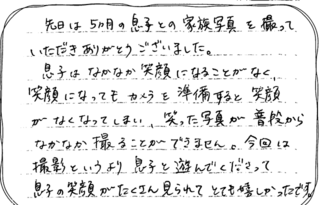 先日は5ヵ月の息子との家族写真を撮って
いただきありがとうございました。
息子はなかなか笑顔になることがなく、
笑顔になってもカメラを準備すると笑顔
がなくなってしまい、笑った写真が普段から
なかなか撮ることができません。今回は
撮影というより息子と遊んでくださって
息子の笑顔がたくさん見られてとても嬉しかったです。